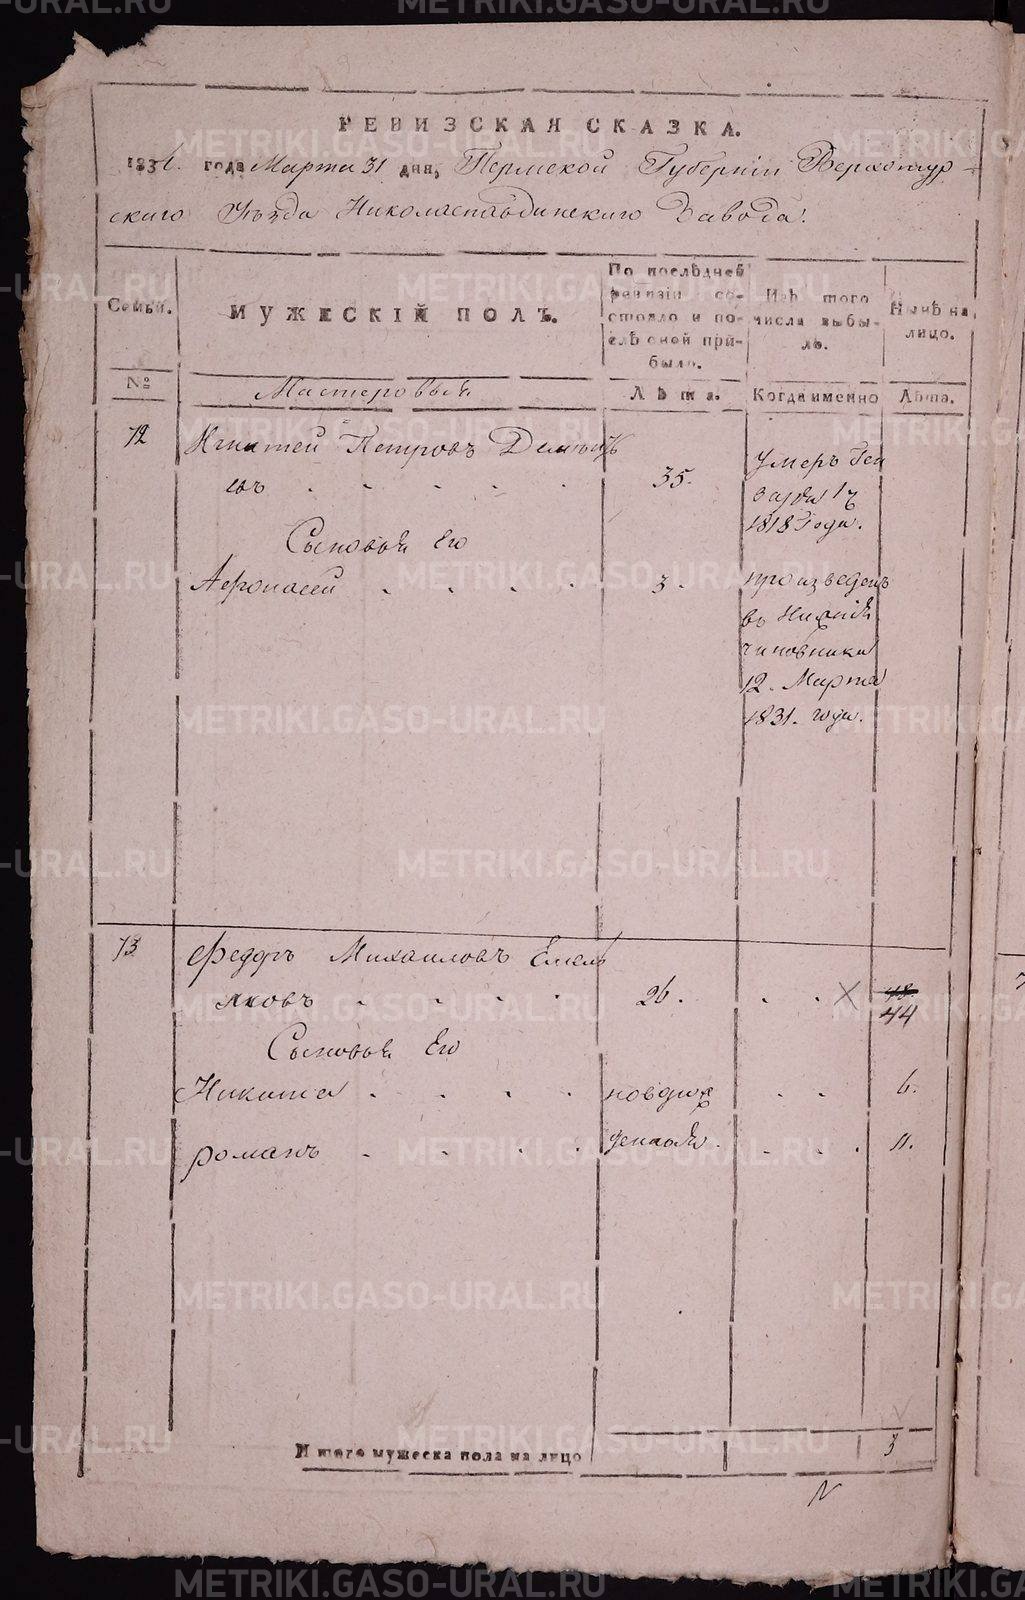 РЕВИЗСКАЯ СКАЗКА.
1834. года Марта 31 дня, Пермской Губернїи Верхотур-
скаго Уѣзда Николаепавдинскаго Завода.
Семьи.
МУЖЕСКІЙ ПОЛЪ.
По послѣдней ревизіи состояло и послѣ оной прибыло.
Изъ того числа выбыло.
Нынѣ на лицо.
№
Мастеровыя
Лѣта.
Когда именно
Лѣта.
72
Игнатей Петровъ Дементь
евъ
35.
умеръ Ген
варя 17
1818 года.
Сыновья Его
Афонасей
3.
произведенъ
въ Нижнія
чиновники
12. Марта
1831. года.
73
Федоръ Михаиловъ Емель
яковъ
26.
48.
44
Сыновья Его
Никита
новорож
6.
романъ
денныя.
11.
Итого мужеска пола на лицо
3
METRIKI.GASO-URAL.RU